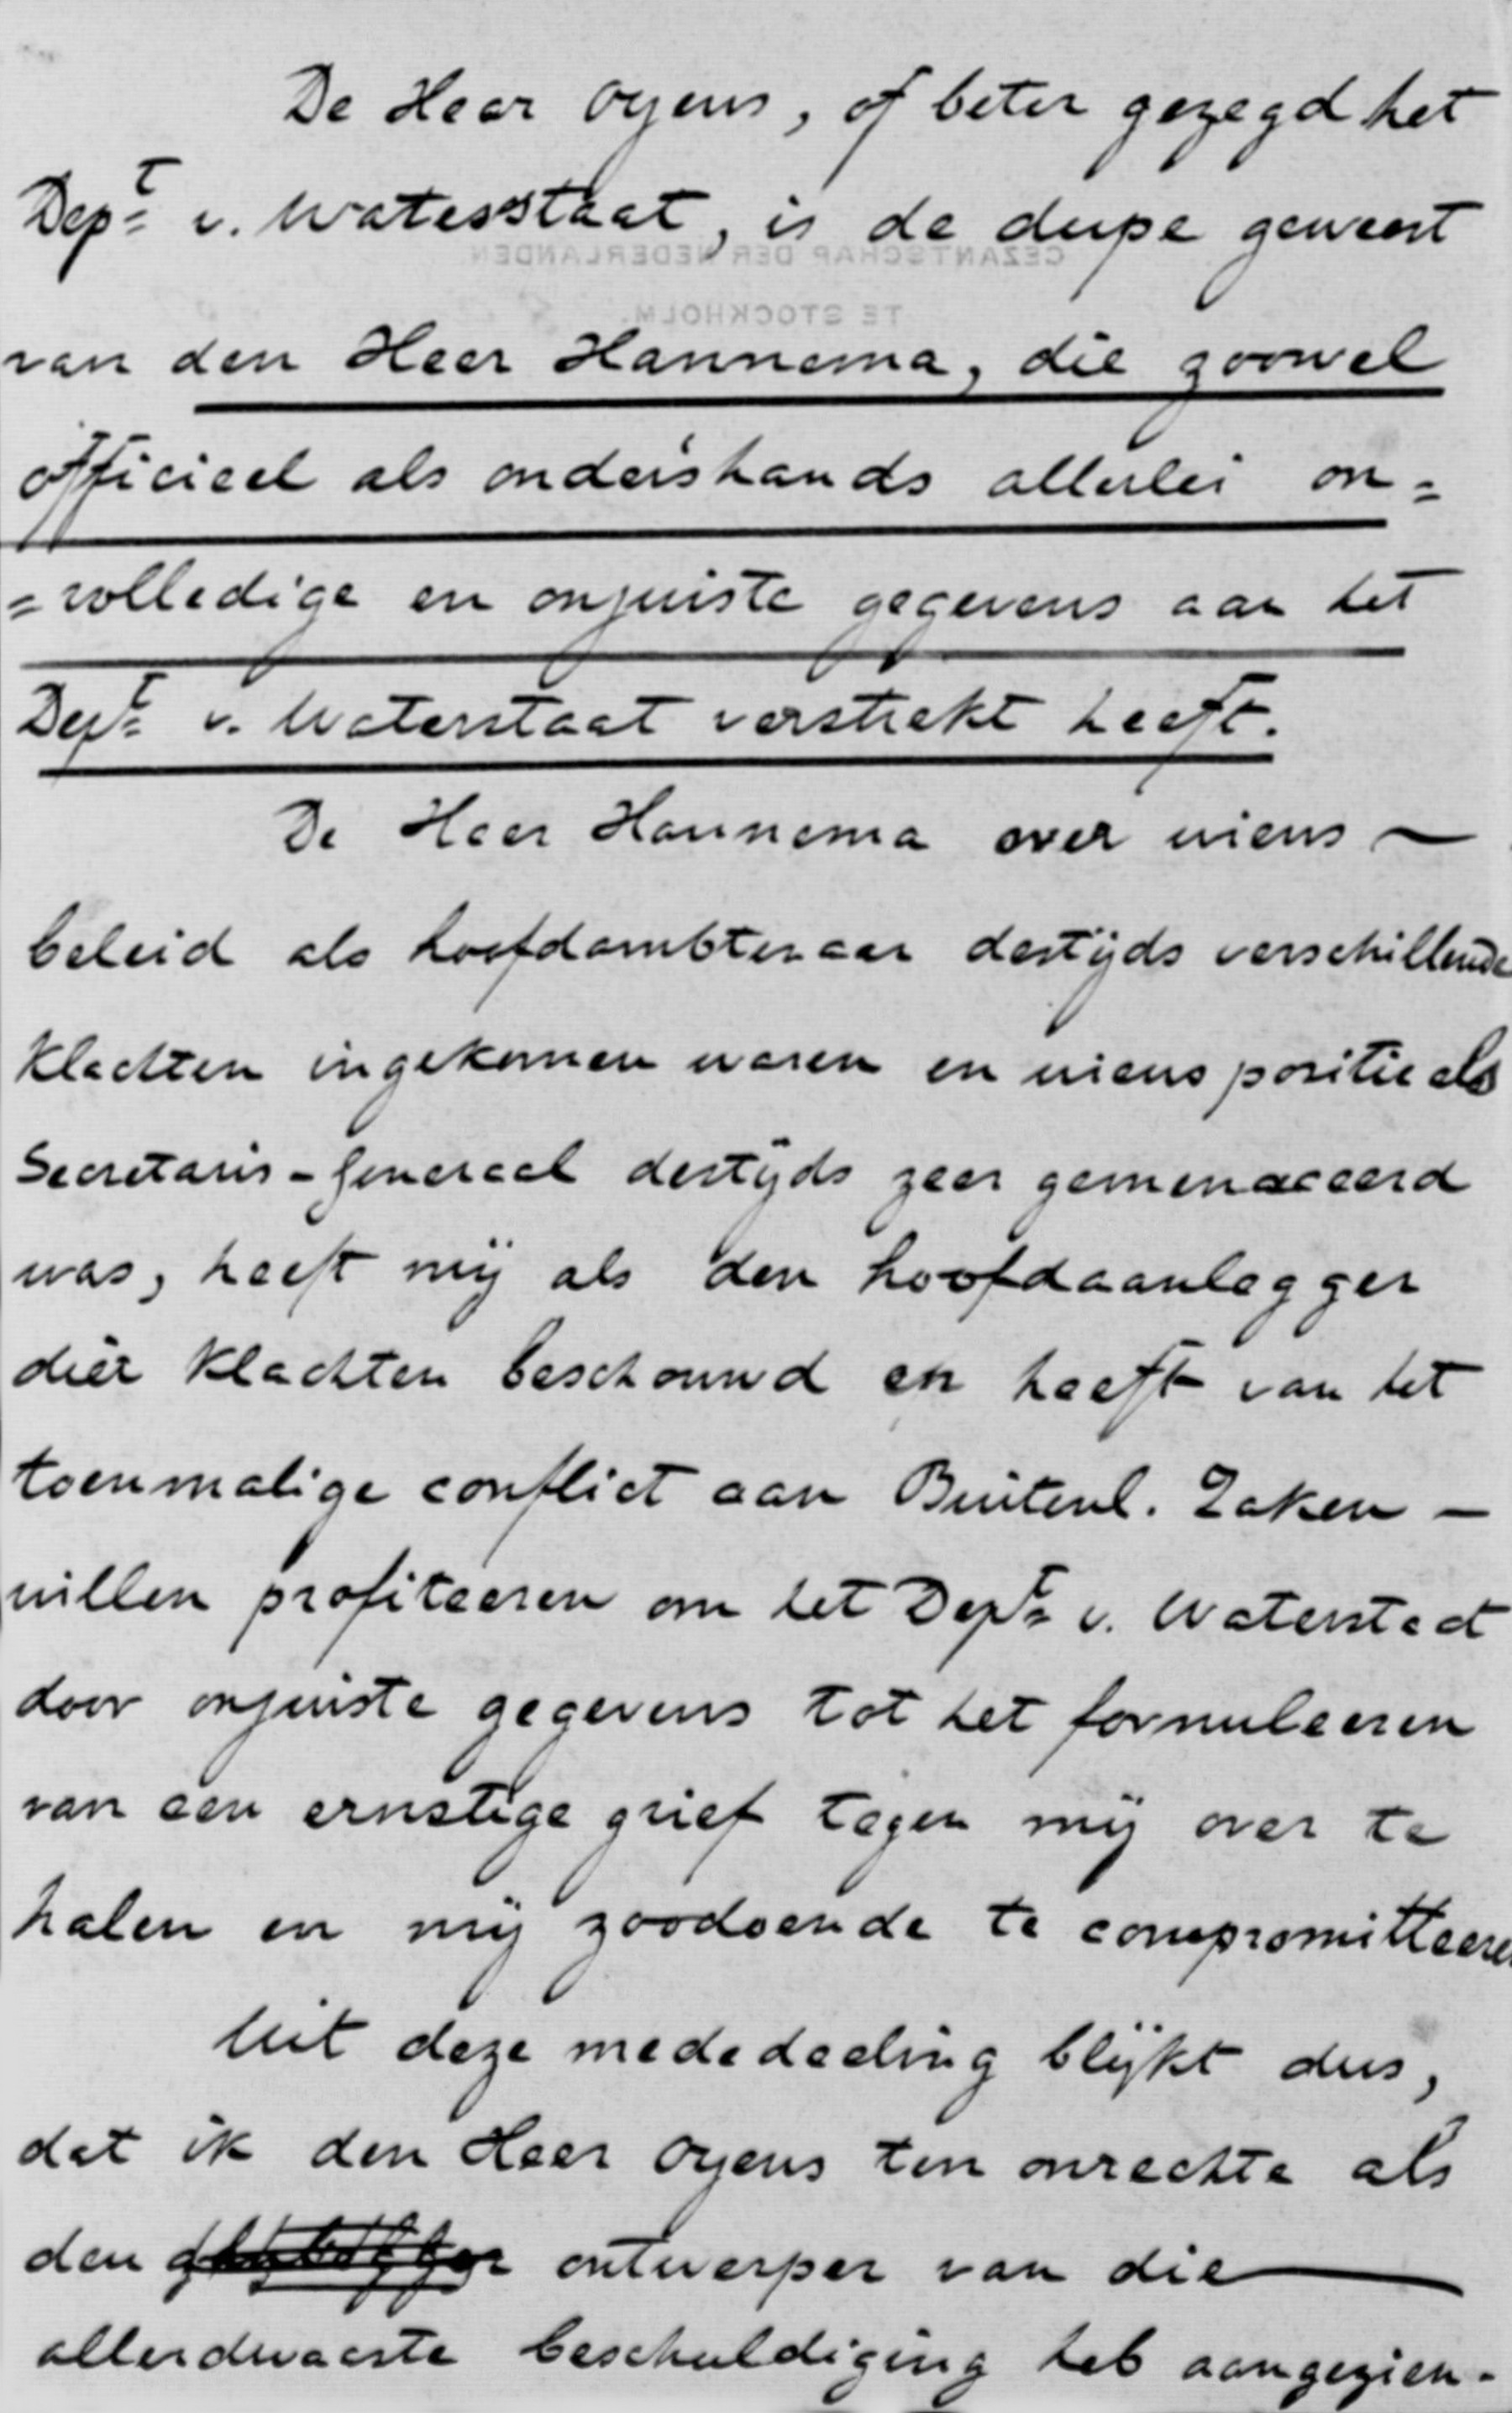 De Heer Oyens, of beter gezegd het
Dept v. Waterstaat, is de dupe geweest
GEZANTSCHAP DER NEDERLANDEN
TE STOCKHOLM.
van den Heer Hannema, die zoowel
officieel als ondershands allerlei on=
=volledige en onjuiste gegevens aan het
Dept v. Waterstaat verstrekt heeft.
De Heer Hannema over wiens —
beleid als hoofdambtenaar destijds verschillende
klachten ingekomen waren en wiens positie als
Secretaris-Generaal destijds zeer gemenaceerd
was, heeft mij als den hoofdaanlegger
dier klachten beschouwd en heeft van het
toenmalige conflict aan Buitenl. Zaken —
willen profiteeren om het Dept v. Waterstaat
door onjuiste gegevens tot het formuleeren
van een ernstige grief tegen mij over te
halen en mij zoodoende te compromitteeren
Uit deze mededeeling blijkt dus,
dat ik den Heer Oyens ten onrechte als
den ontwerper van die —
allerdwaaste beschuldiging heb aangezien.